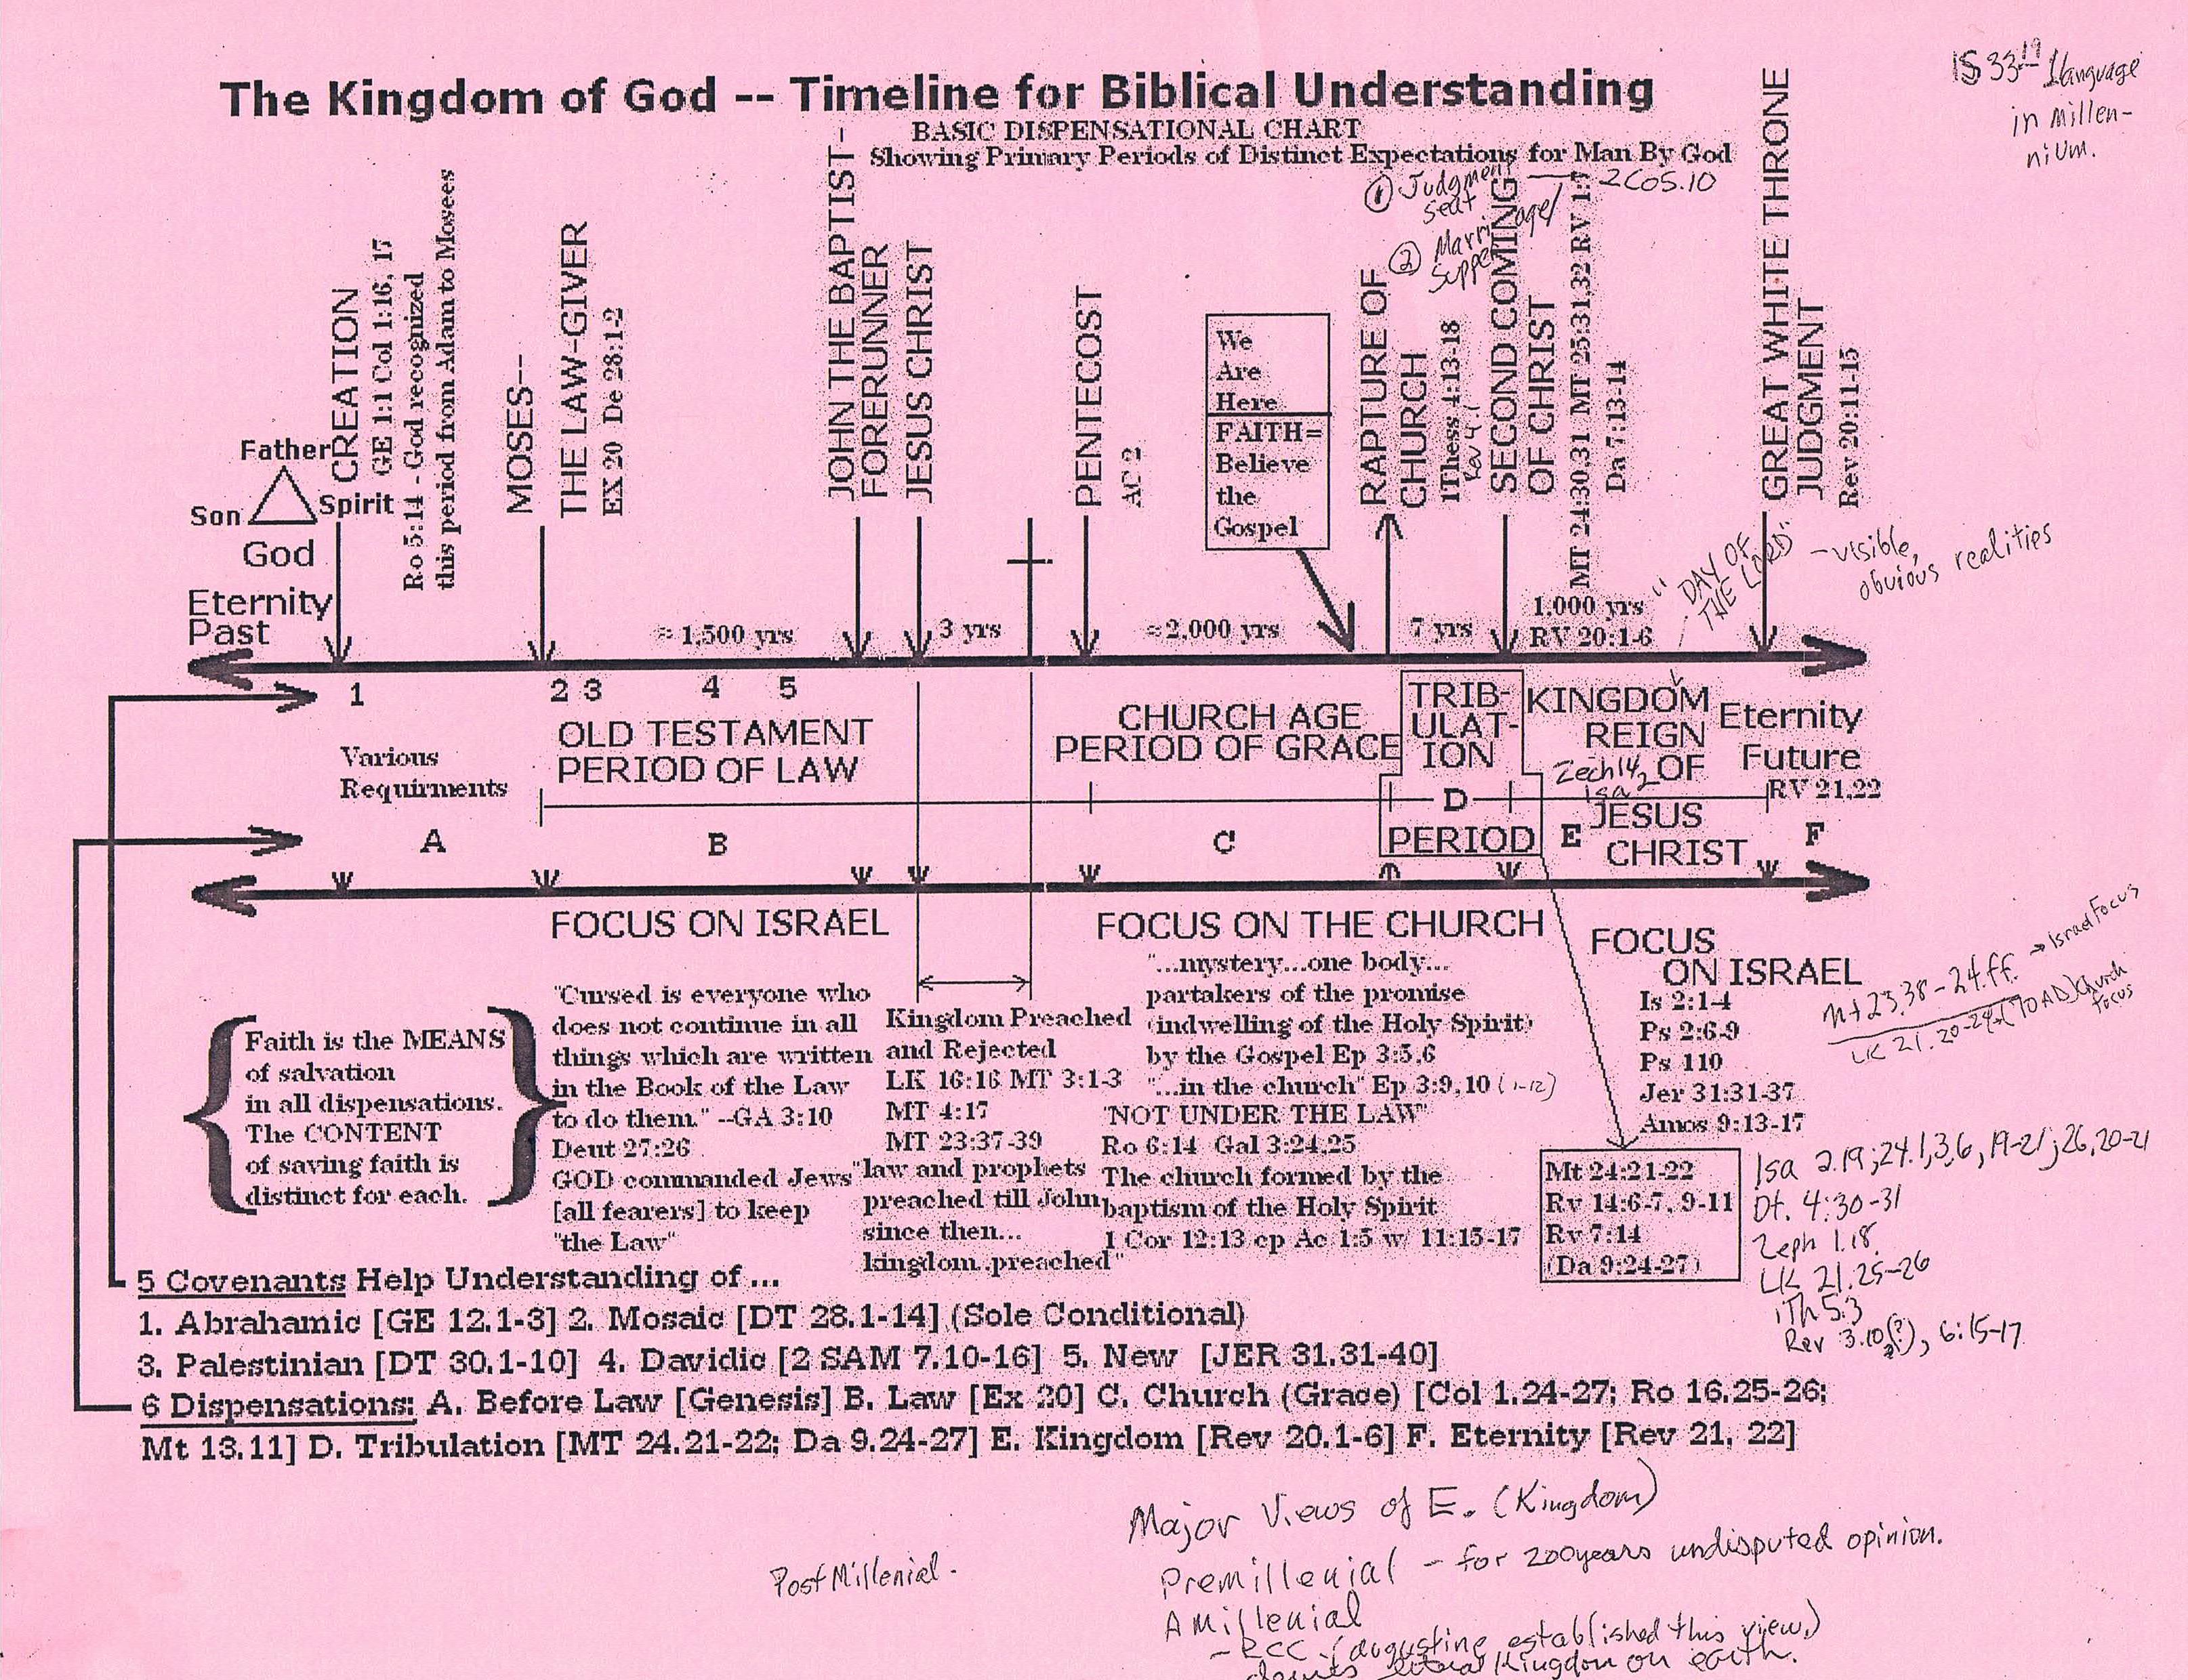 The Kingdom of God -- Timeline for Biblical Understanding
BASIC DISPENSATIONAL CHART
Showing Primary Periods of Distinct Expectations for Man By God
IS 33.19 1language
in millen-
nium.
① Judgment
seat
2Co5.10
② Marriage
Supper
Father
Son
Spirit
God
Eternity
Past
CREATION
GE 1:1 Col 1:16, 17
Ro 5:14 - God recognized
this period from Adam to Moses
MOSES--
THE LAW-GIVER
EX 20 De 28:1-2
JOHN THE BAPTIST-
FORERUNNER
JESUS CHRIST
PENTECOST
AC 2
We
Are
Here
FAITH=
Believe
the
Gospel
RAPTURE OF
CHURCH
1Thess 4:13-18
Rev 4:1
SECOND COMING
OF CHRIST
MT 24:30,31 MT 25:31,32 RV 1:7
Da 7:13-14
GREAT WHITE THRONE
JUDGMENT
Rev 20:11-15
"DAY OF
THE LORD"
- visible,
obvious realities
≈ 1,500 yrs
3 yrs
≈2,000 yrs
7 yrs
1,000 yrs
RV 20:1-6
1
2 3
4
5
Various
Requirments
OLD TESTAMENT
PERIOD OF LAW
CHURCH AGE
PERIOD OF GRACE
TRIB-
ULAT-
ION
D
PERIOD
KINGDOM
REIGN
OF
JESUS
CHRIST
Zech 14,
Isa 2
Eternity
Future
RV 21,22
A
B
C
E
F
FOCUS ON ISRAEL
FOCUS ON THE CHURCH
FOCUS
ON ISRAEL
Is 2:1-4
Ps 2:6-9
Ps 110
Jer 31:31-37
Amos 9:13-17
Mt 23.38-24.ff. → Israel Focus
LK 21.20-24 (70 AD) Church
focus
Faith is the MEANS
of salvation
in all dispensations.
The CONTENT
of saving faith is
distinct for each.
"Cursed is everyone who
does not continue in all
things which are written
in the Book of the Law
to do them." --GA 3:10
Deut 27:26
GOD commanded Jews
[all fearers] to keep
"the Law"
Kingdom Preached
and Rejected
LK 16:16 MT 3:1-3
MT 4:17
MT 23:37-39
"law and prophets
preached till John,
since then...
kingdom..preached"
"...mystery...one body...
partakers of the promise
(indwelling of the Holy Spirit)
by the Gospel Ep 3:5,6
"...in the church" Ep 3:9,10 (1-12)
"NOT UNDER THE LAW"
Ro 6:14 Gal 3:24,25
The church formed by the
baptism of the Holy Spirit
1 Cor 12:13 cp Ac 1:5 w/ 11:15-17
Mt 24:21-22
Rv 14:6-7, 9-11
Rv 7:14
(Da 9:24-27)
Isa 2.19; 24.1,3,6, 19-21; 26.20-21
Dt. 4:30-31
Zeph 1.18
LK 21.25-26
1Th 5.3
Rev 3.10(?), 6:15-17
5 Covenants Help Understanding of ...
1. Abrahamic [GE 12.1-3] 2. Mosaic [DT 28.1-14] (Sole Conditional)
3. Palestinian [DT 30.1-10] 4. Davidic [2 SAM 7.10-16] 5. New [JER 31.31-40]
6 Dispensations: A. Before Law [Genesis] B. Law [Ex 20] C. Church (Grace) [Col 1.24-27; Ro 16.25-26;
Mt 13.11] D. Tribulation [MT 24.21-22; Da 9.24-27] E. Kingdom [Rev 20.1-6] F. Eternity [Rev 21, 22]
Major Views of E. (Kingdom)
Premillenial - for 200years undisputed opinion.
PostMillenial.
AMillenial
- RCC (augustine established this view.)
denies literal Kingdom on earth.